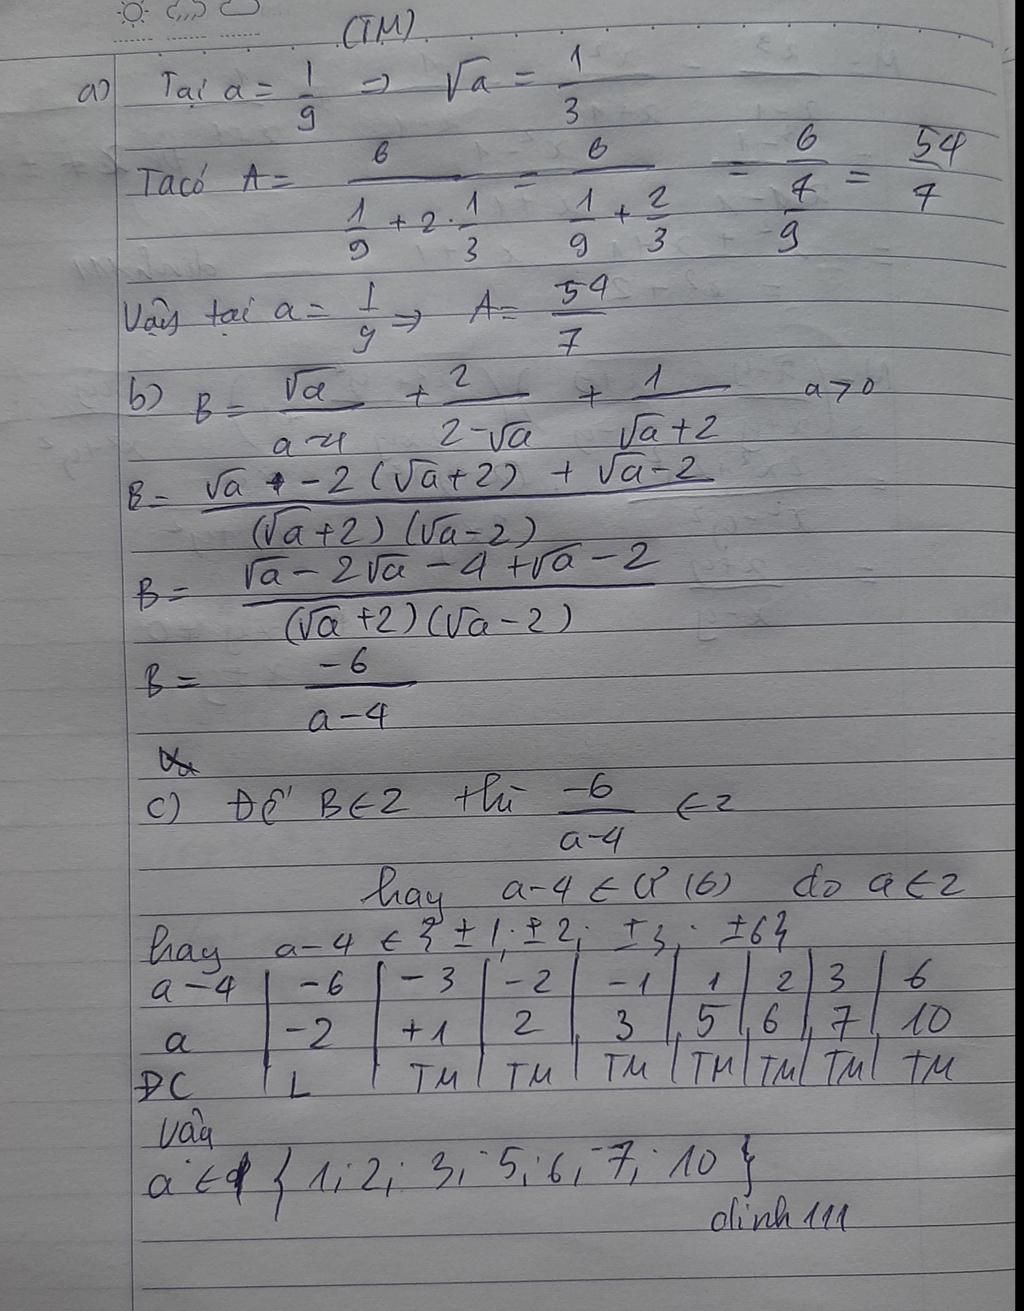 (TM)
a) Tại a = 1/9 => √a = 1/3
Ta có A = 6/(1/9 + 2 . 1/3) = 6/(1/9 + 2/3) = 6/(7/9) = 54/7
Vậy tại a = 1/9 => A = 54/7
b) B = √a/(a-4) + 2/(2-√a) + 1/(√a+2) a>0
B = (√a - 2(√a+2) + √a-2)/((√a+2)(√a-2))
B = (√a - 2√a - 4 + √a - 2)/((√a+2)(√a-2))
B = -6/(a-4)
c) Để B ∈ Z thì -6/(a-4) ∈ Z
hay a-4 ∈ Ư(6) do a ∈ Z
hay a-4 ∈ { ±1; ±2; ±3; ±6}
a-4 | -6 | -3 | -2 | -1 | 1 | 2 | 3 | 6
a | -2 | +1 | 2 | 3 | 5 | 6 | 7 | 10
ĐC | L | TM | TM | TM | TM | TM | TM | TM
Vậy
a ∈ { 1; 2; 3; 5; 6; 7; 10 }
dinh 111